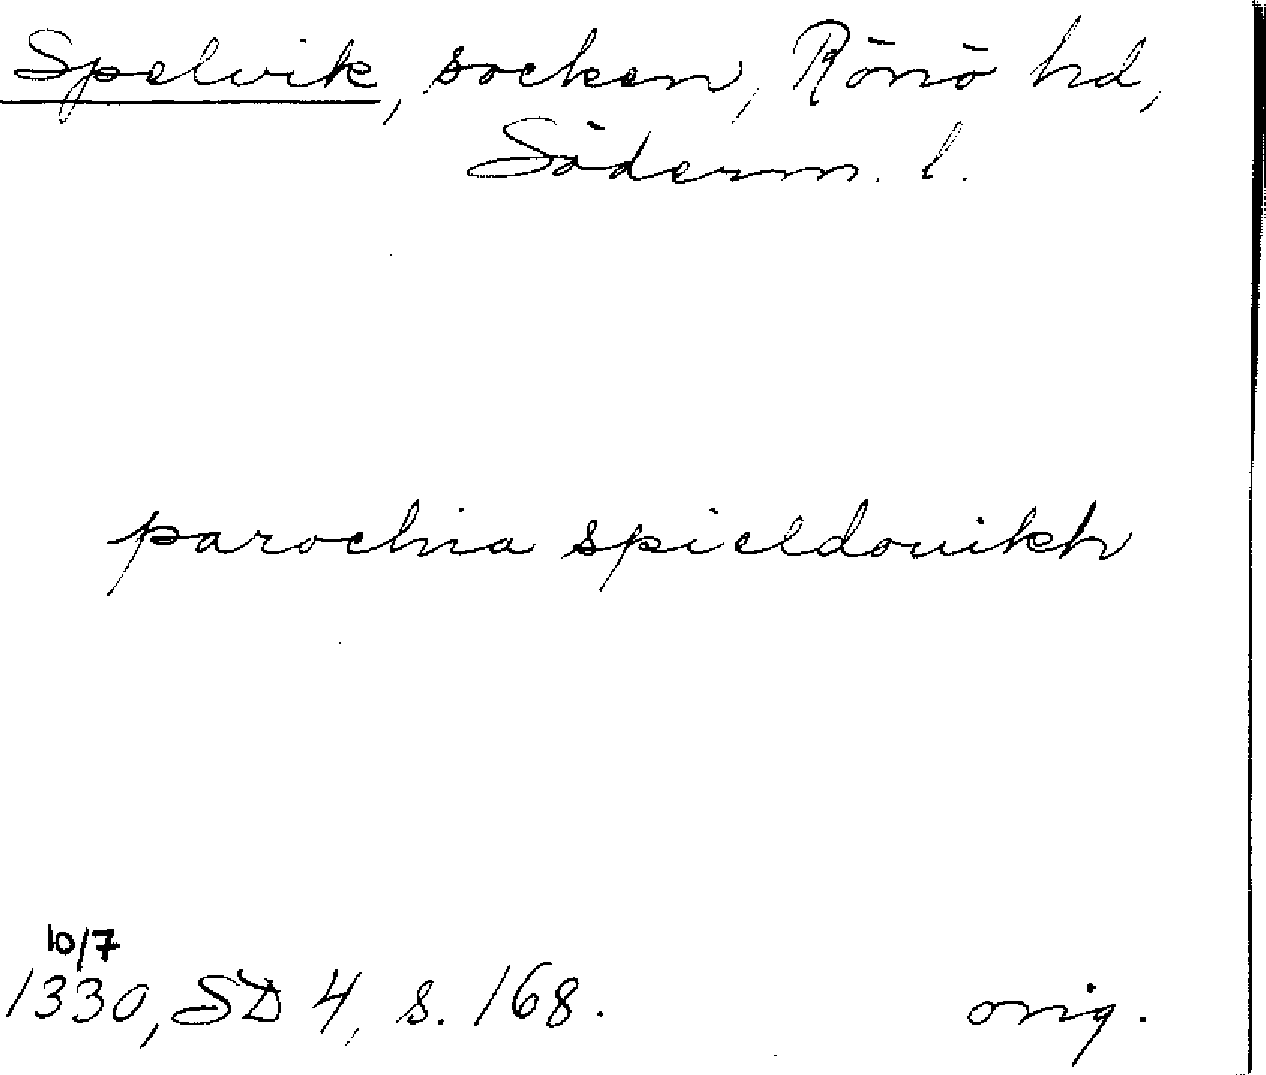 Spelvik, socken, Rönö hd,
Söderm. l.
parochia spieldouikh
10/7
1330, SD 4, s. 168. orig.